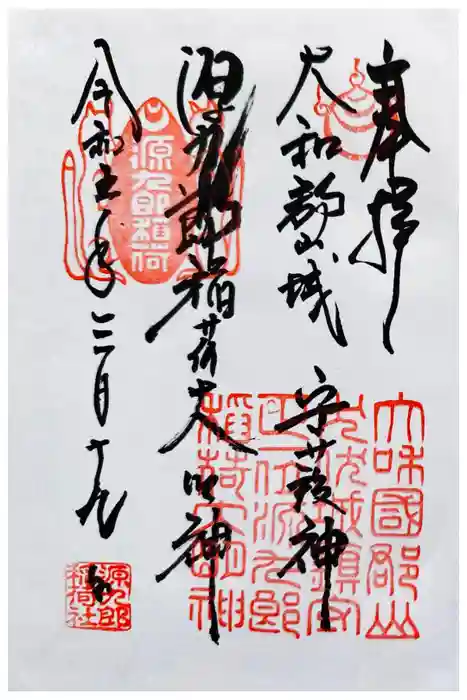 奉拝
大和郡山城 守護神
源九郎稲荷大明神
令和五年三月十九日
源九郎稲荷
大和國郡山
城鎮守
正一位源九郎
稲荷大明神
源九郎
稲荷社